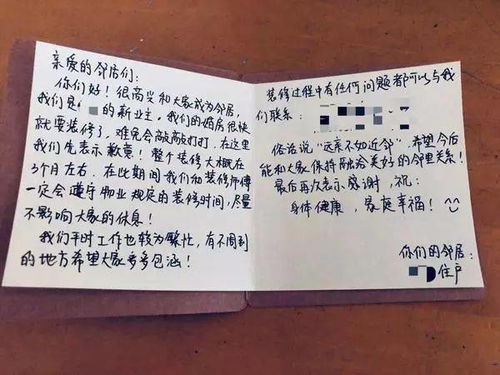 亲爱的邻居们：
你们好！很高兴和大家成为邻居，
我们是 的新业主，我们的婚房很快
就要装修了，难免会敲敲打打，在这里
我们先表示歉意！整个装修大概在
3个月左右，在此期间我们和装修师傅
一定会遵守物业规定的装修时间，尽量
不影响大家的休息！
我们平时工作也较为繁忙，有不周到
的地方希望大家多多包涵！
装修过程中有任何问题都可以与我
们联系：
俗话说"远亲不如近邻"，希望今后
能和大家保持融洽美好的邻里关系！
最后再次表示感谢，祝：
身体健康，家庭幸福！
你们的邻居：
住户